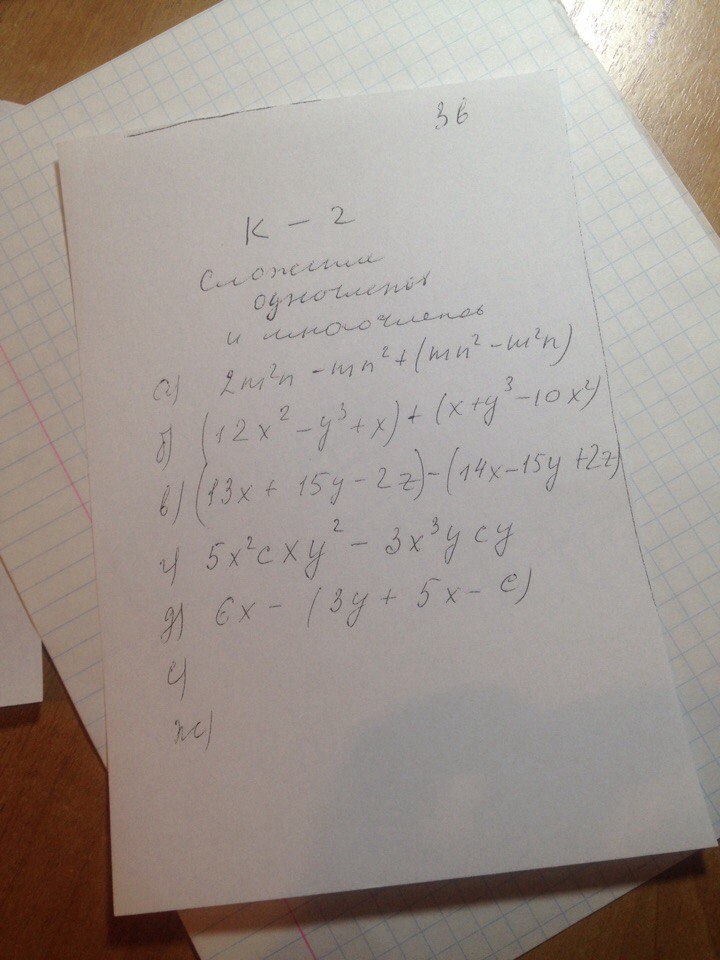 3 в
К - 2
Сложение
одночленов
и многочленов
а) 2m²n - mn² + (mn² - m²n)
б) (12x² - y³ + x) + (x + y³ - 10x²)
в) (13x + 15y - 2z) - (14x - 15y + 2z)
г) 5x²cxy² - 3x³ycy
д) 6x - (3y + 5x - c)
е)
ж)